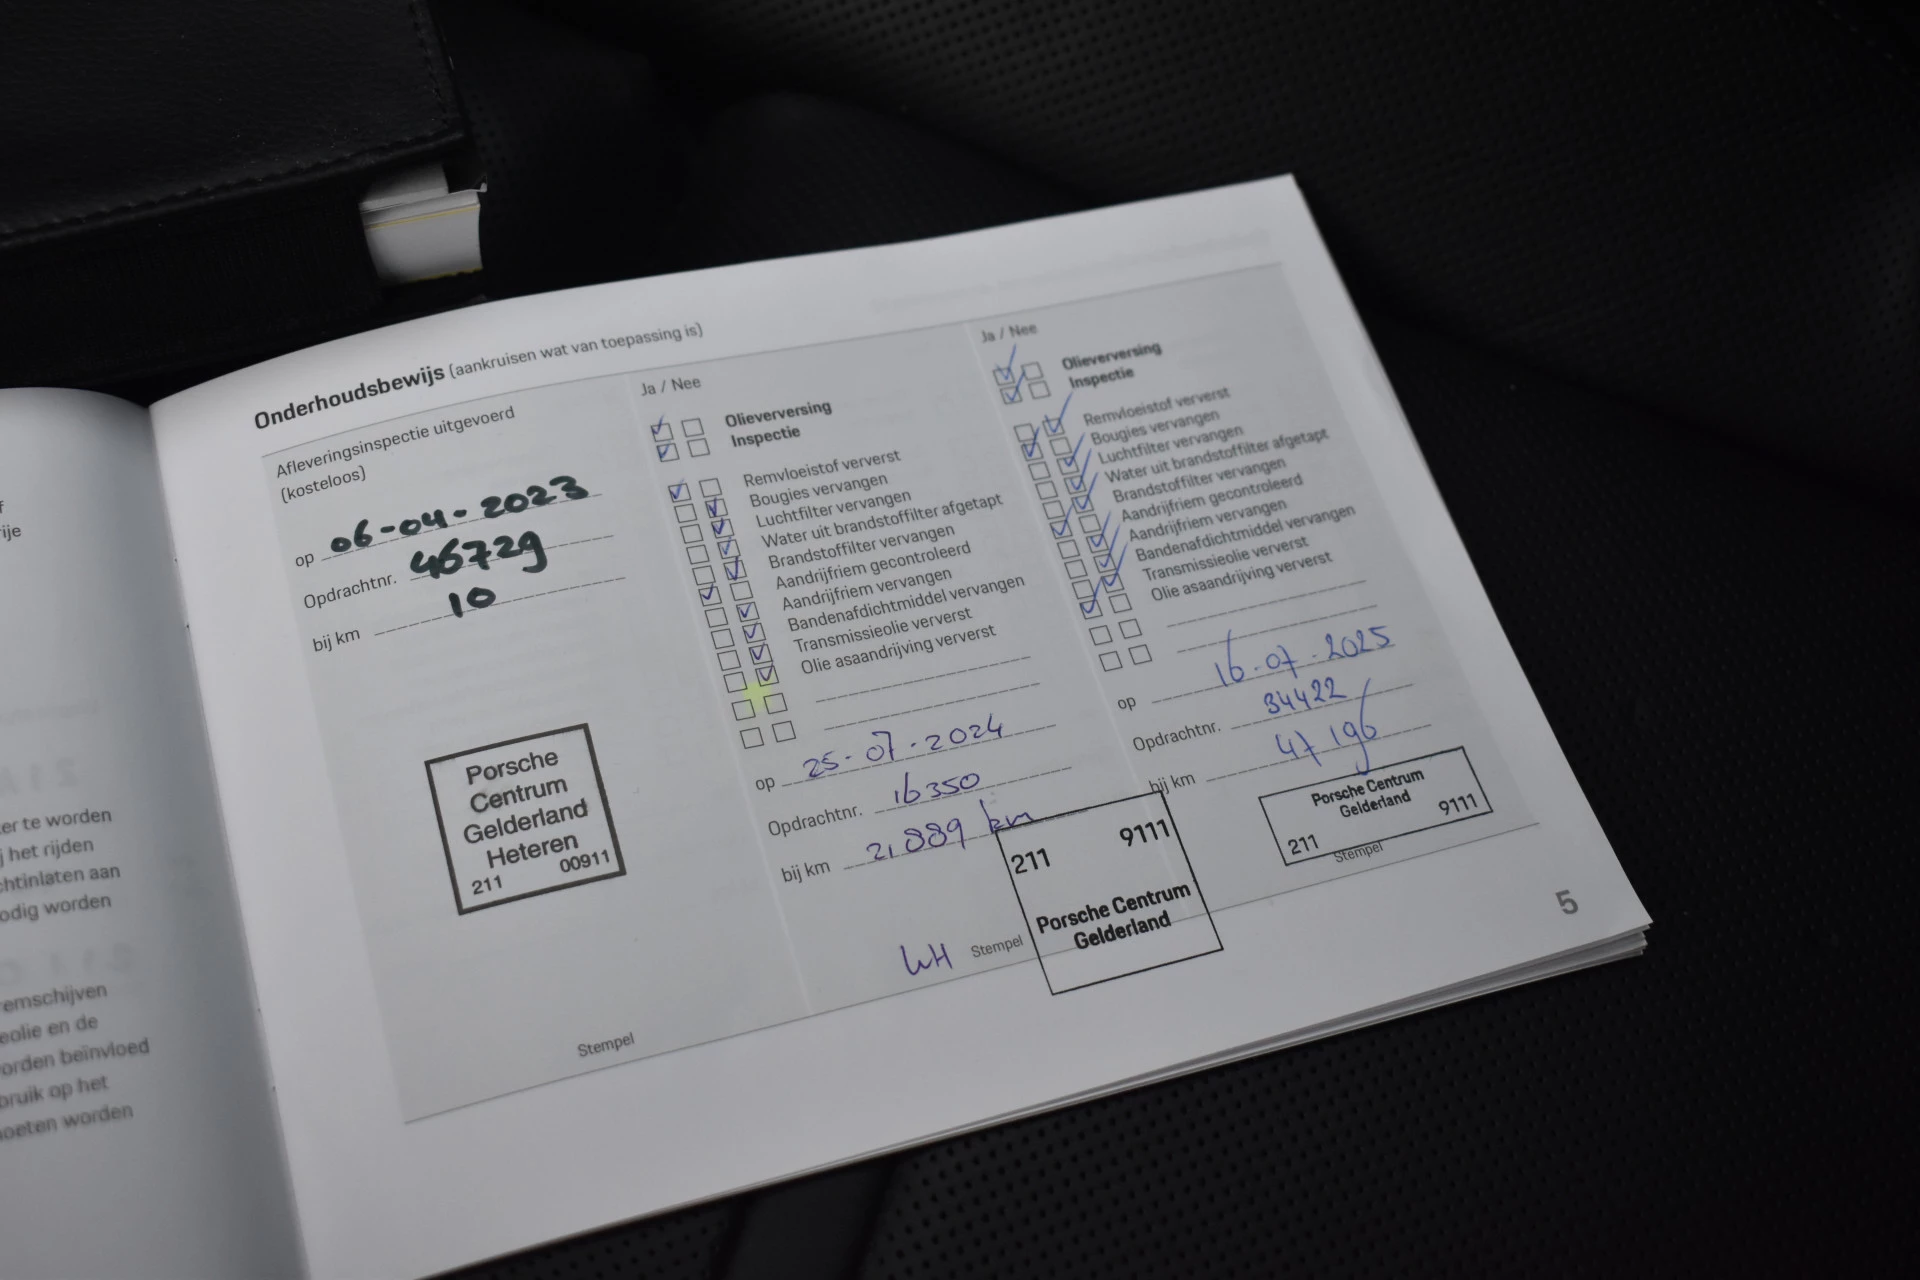 Onderhoudsbewijs (aankruisen wat van toepassing is)
Afleveringsinspectie uitgevoerd
(kosteloos)
op 06-04-2023
Opdrachtnr. 46729
bij km 10
Porsche
Centrum
Gelderland
Heteren
211 00911
Stempel
Ja / Nee
Olieverversing
Inspectie
Remvloeistof ververst
Bougies vervangen
Luchtfilter vervangen
Water uit brandstoffilter afgetapt
Brandstoffilter vervangen
Aandrijfriem gecontroleerd
Aandrijfriem vervangen
Bandenafdichtmiddel vervangen
Transmissieolie ververst
Olie asaandrijving ververst
op 25-07-2024
Opdrachtnr. 16350
bij km 21889 km
211 9111
Porsche Centrum
Gelderland
WH Stempel
Ja / Nee
Olieverversing
Inspectie
Remvloeistof ververst
Bougies vervangen
Luchtfilter vervangen
Water uit brandstoffilter afgetapt
Brandstoffilter vervangen
Aandrijfriem gecontroleerd
Aandrijfriem vervangen
Bandenafdichtmiddel vervangen
Transmissieolie ververst
Olie asaandrijving ververst
op 16-07-2025
Opdrachtnr. 34422
bij km 47196
Porsche Centrum
Gelderland
211 9111
Stempel
5
er te worden
het rijden
chtinlaten aan
odig worden
remschijven
eolie en de
orden beïnvloed
bruik op het
oeten worden